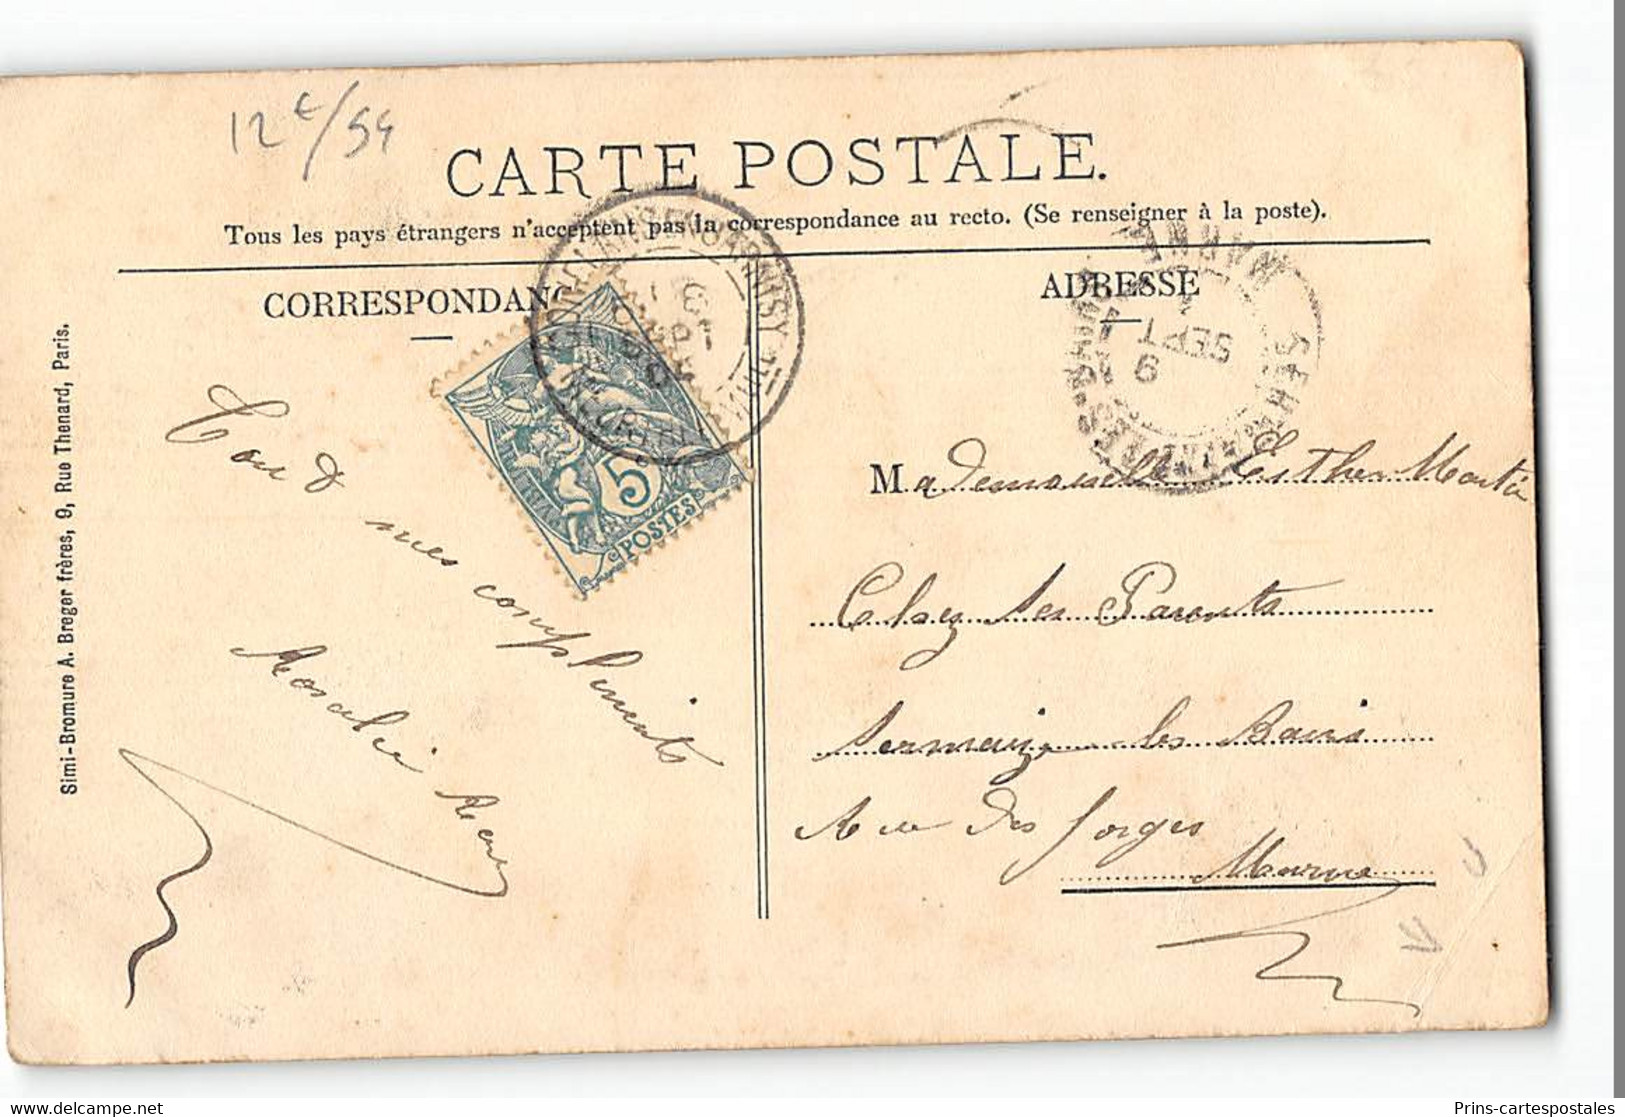 12€/54
CARTE POSTALE.
Tous les pays étrangers n'acceptent pas la correspondance au recto. (Se renseigner à la poste).
CORRESPONDANC
ADRESSE
Simi-Bromure A. Breger frères, 9, Rue Thenard, Paris.
mes compliments
Rosalie
5
POSTES
9
SEPT
MARNE
Mademoiselle Esther Martin
Chez ses Parents
Sermaize-les Bains
Rue des forges
Marne
www.delcampe.net
Prins-cartespostales